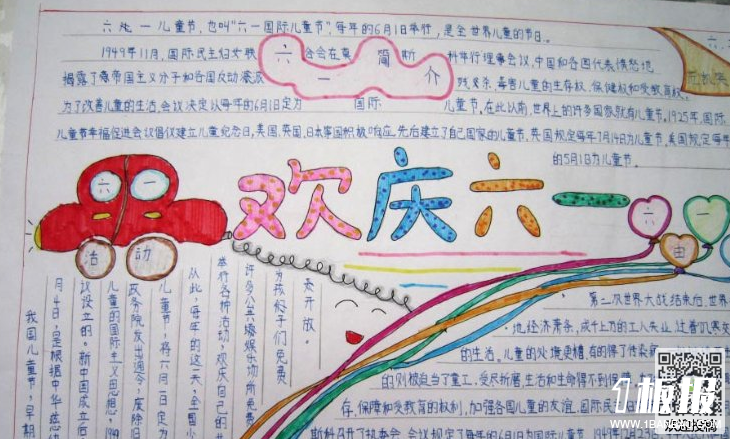 六一儿童节,也叫“六一国际儿童节”,每年的6月1日举行,是全世界儿童的节日。
1949年11月,国际民主妇女联合会在莫斯科举行理事会议,中国和各国代表愤怒地
揭露了帝国主义分子和各国反动派残杀、毒害儿童的
生存权、保健权和受教育权,
为了改善儿童的生活,会议决定以每年的6月1日定为国际儿童节。在此以前,世界上的许多国家就有儿童节。1925年,国际
儿童节幸福促进会议倡仪建立儿童纪念日,英国,美国,日本等国积极响应,先后建立了自己国家的儿童节,英国规定每年7月14日为儿童节,美国规定每年
的5月1日为儿童节。
六一
简介
欢庆六一
六一
活动
六
一
由
我国儿童节,早期
月4日,是根据中华慈幼
议设立的。新中国成立后
儿童的国际主义思想,194
政务院发出通令,废除旧
儿童节,将六月一日定为
从此,每年的这一天,全国少
举行各种活动,欢庆自己的
许多公共娱乐场所免费
为孩子们免费
开放。
第二次世界大战结束后,世界
地经济萧条,成千上万的工人失业,过着饥寒交
的生活。儿童的处境更糟,有的得了传染
的则被迫当了童工,受尽折磨,生活和生命得不到保障
存、保障和受教育的权利,加强各国儿童的友谊,国际民主
斯科召开了执委会
1板报